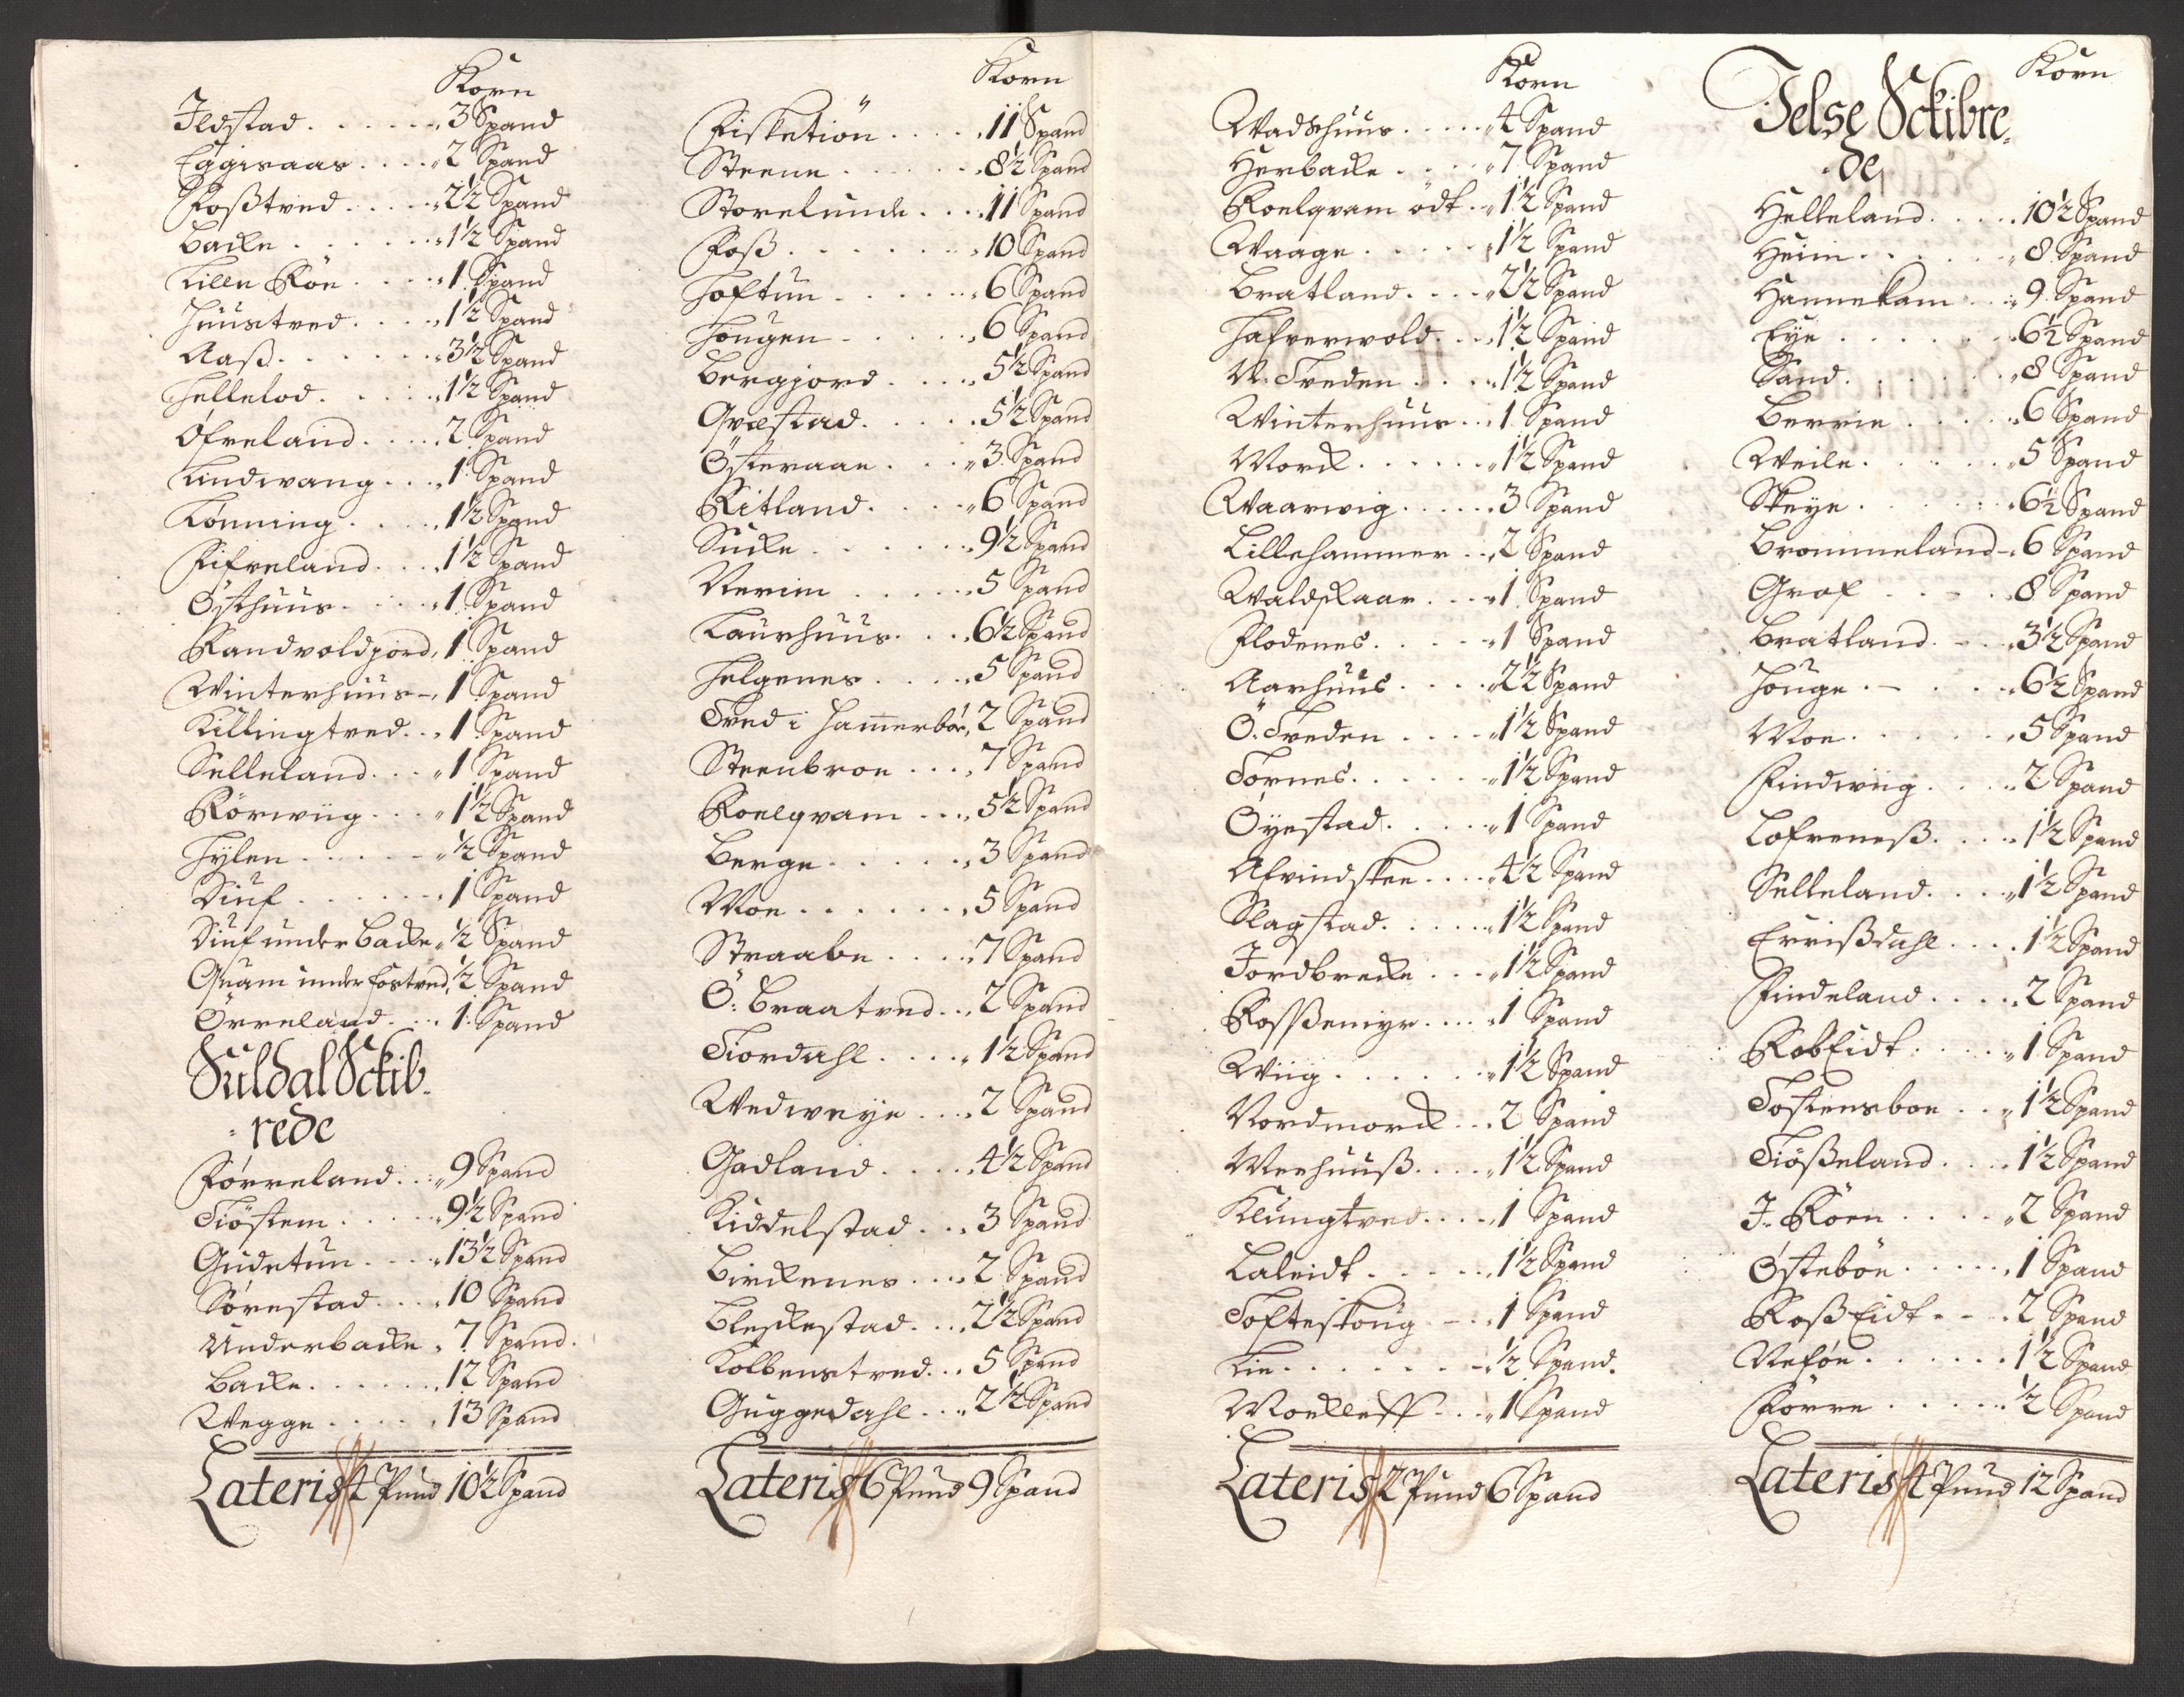 Korn
Ildstad . . . . . 3 Spand
Eggisaas . . . . 2 Spand
Foßtved . . . . 2½ Spand
Backe . . . . . 1½ Spand
Lille Röe . . . . 1 Spand
Huustved . . . . 1½ Spand
Aaß . . . . . 3½ Spand
Hellelod . . . . 1½ Spand
Øfreland . . . . 2 Spand
Lindvang . . . 1 Spand
Lønning . . . . 1½ Spand
Fifveland . . . 1½ Spand
Østhuus . . . . 1 Spand
Randvoldjord, 1 Spand
Winterhuus - 1 Spand
Killingtved . . 1 Spand
Selleland . . . 1 Spand
Rörwiig . . . 1½ Spand
Hylen . . . . . ½ Spand
Diuf . . . . . . 1 Spand
Diuf under Backe ½ Spand
Quam under Fostved, ½ Spand
Örreland . . . 1 Spand
Suldal Sckib-
rede
Førreland . . . 9 Spand
Tiöstem . . . . 9½ Spand
Gudetun . . . 13½ Spand
Sørestad . . . 10 Spand
Underbacke . 7 Spand.
Backe . . . . . 12 Spand
Wegge . . . . . 13 Spand
Lateris 4 Pund 10½ Spand
Korn
Fisketiön . . . . 11 Spand
Steene . . . . . 8½ Spand
Storelunde . . . 11 Spand
Foß . . . . . . . 10 Spand
Hoftun . . . . . 6 Spand
Hougen . . . . . 6 Spand
Bergjord . . . . 5½ Spand
Qvæstad . . . . . 5½ Spand
Österaae . . . 3 Spand
Ritland . . . . 6 Spand
Sucke . . . . . . 9½ Spand
Nerim . . . . . 5 Spand
Laurhuus . . . 6½ Spand
Helgenes . . . . 5 Spand
Tved i Hamerbör, 2 Spand
Steenbroe . . . 7 Spand
Roelqvam . . . 5½ Spand
Berge . . . . . . 3 Spand
Moe . . . . . . . 5 Spand
Straabe . . . . . 7 Spand
Ö: Braatved . . 2 Spand
Tiordahl . . . . 1½ Spand
Wedweye . . . 2 Spand
Gadland . . . . 4½ Spand
Kiddelstad . . . 3 Spand
Birckenes . . . 2 Spand
Bleskestad . . . 2½ Spand
Kolbenstved . . 5 Spand
Guggedahl . . . 2½ Spand
Lateris 6 Pund 9 Spand
Korn
Wadshuus . . . . 4 Spand
Herbacke . . . . 7 Spand
Roelqvam ödt . 1½ Spand
Waage . . . . . 1½ Spand
Bratland . . . . 2½ Spand
Hafrevold . . . 1½ Spand
N. Tveden . . . . 1½ Spand
Winterhuus . . 1 Spand
Morck . . . . . . 1½ Spand
Waarwig . . . . . 3 Spand
Lillehammer . . 2 Spand
Waldskaar . . . 1 Spand
Flodenes . . . . 1 Spand
Aarhuus . . . . 2½ Spand
Ö. Tveden . . . . 1½ Spand
Tørnes . . . . . 1½ Spand
Öyestad . . . . . 1 Spand
Afvindskee . . . . 4½ Spand
Slagstad . . . . . 1½ Spand
Jordbrecke . . . 1½ Spand
Rossemyr . . . . 1 Spand
Wiig . . . . . . . 1½ Spand
Nordmorck . . 2 Spand
Meehuuß . . . . 1½ Spand
Klungtved . . . . 1 Spand
Laleidt . . . . . . 1½ Spand
Tofteskoug - . . 1 Spand
Lie . . . . . . . . ½ Spand.
Mockleff . . . 1 Spand
Lateris 2 Pund 6 Spand
Korn
Jelse Sckibre-
de
Helleland . . . . 10½ Spand
Heim . . . . . . 8 Spand
Hannekam . . . 9 Spand
Eye . . . . . . . 6½ Spand
Sand . . . . . . 8 Spand
Berrie . . . . . 6 Spand
Weile . . . . . . 5 Spand
Skeye . . . . . . 6½ Spand
Brommeland - 6 Spand
Grof . . . . . 8 Spand
Bratland . - . . 3½ Spand
Houge . - . . . 6½ Spand
Moe . . . . . . 5 Spand
Findwiig . . . . 2 Spand
Lofreneß . . . . 1½ Spand
Selleland . . . . 1½ Spand
Errißdahl . . . . 1½ Spand
Findeland . . . . 2 Spand
RobEidt . . . . . 1 Spand
Tostensboe . . . 1½ Spand
Tiößeland . . . . 1½ Spand
I. Röen . . . . . 2 Spand
Østeböe . . . . . 1 Spand
RoßEidt - - . . 2 Spand
Nesøe . . . . . . 1½ Spand
Förre . . . . . . ½ Spand
Lateris 4 Pund 12 Spand